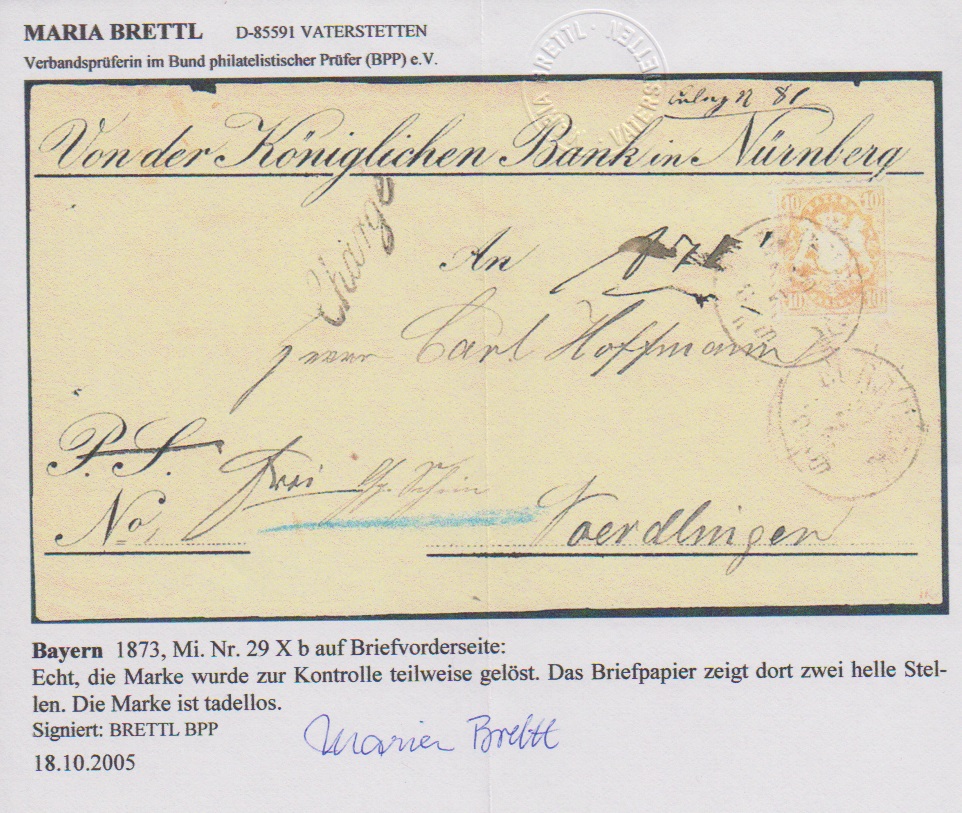 MARIA BRETTL D-85591 VATERSTETTEN
Verbandsprüferin im Bund philatelistischer Prüfer (BPP) e.V.
MARIA BRETTL · VATERSTETTEN ·
81
Von der Königlichen Bank in Nürnberg
Chargé
10 10
An
10 10
Herrn Carl Hoffmann
P. S.
frei
No.
Noerdlingen
Bayern 1873, Mi. Nr. 29 X b auf Briefvorderseite:
Echt, die Marke wurde zur Kontrolle teilweise gelöst. Das Briefpapier zeigt dort zwei helle Stel-
len. Die Marke ist tadellos.
Signiert: BRETTL BPP
Maria Brettl
18.10.2005